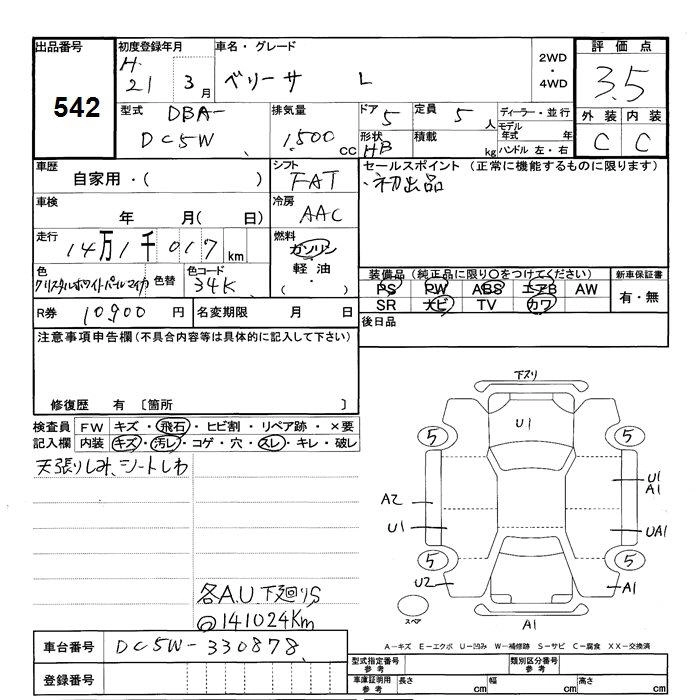 出品番号
542
初度登録年月
H.
21 3月
車名・グレード
ベリーサ L
2WD
・
4WD
評価点
3.5
外装 内装
C C
型式 DBA-
DC5W
排気量
1,500 CC
ドア 5
形状 HB
定員 5 人
積載 kg
ディーラー・並行
モデル年式 年
ハンドル 左・右
車歴
自家用・( )
シフト
FAT
セールスポイント (正常に機能するものに限ります)
・初出品
車検
年 月( 日)
冷房
AAC
走行 14万1千017 km
燃料
ガソリン
軽油
・( )
色
クリスタルホワイトパールマイカ
色替
色コード
34K
装備品 (純正品に限り○をつけてください)
PS PW ABS エアB AW
SR ナビ TV カワ
新車保証書
有・無
R券 10,900 円
名変期限 月 日
後日品
注意事項申告欄 (不具合内容等は具体的に記入して下さい)
修復歴 有 〔箇所 〕
検査員記入欄
FW キズ・飛石・ヒビ割・リペア跡・×要
内装 キズ・汚レ・コゲ・穴・スレ・キレ・破レ
天張りしみ、シートしわ
各A.U.下廻りS
@141024Km
下スリ
U1
5 5
A2
U1
U1
A1
UA1
5 5
U2
A1
スペア
A1
A-キズ E-エクボ U-凹み W-補修跡 S-サビ C-腐食 XX-交換済
車台番号 DC5W-330878
登録番号
型式指定番号
参考
類別区分番号
参考
車庫証明用
参考
長さ cm 幅 cm 高さ cm